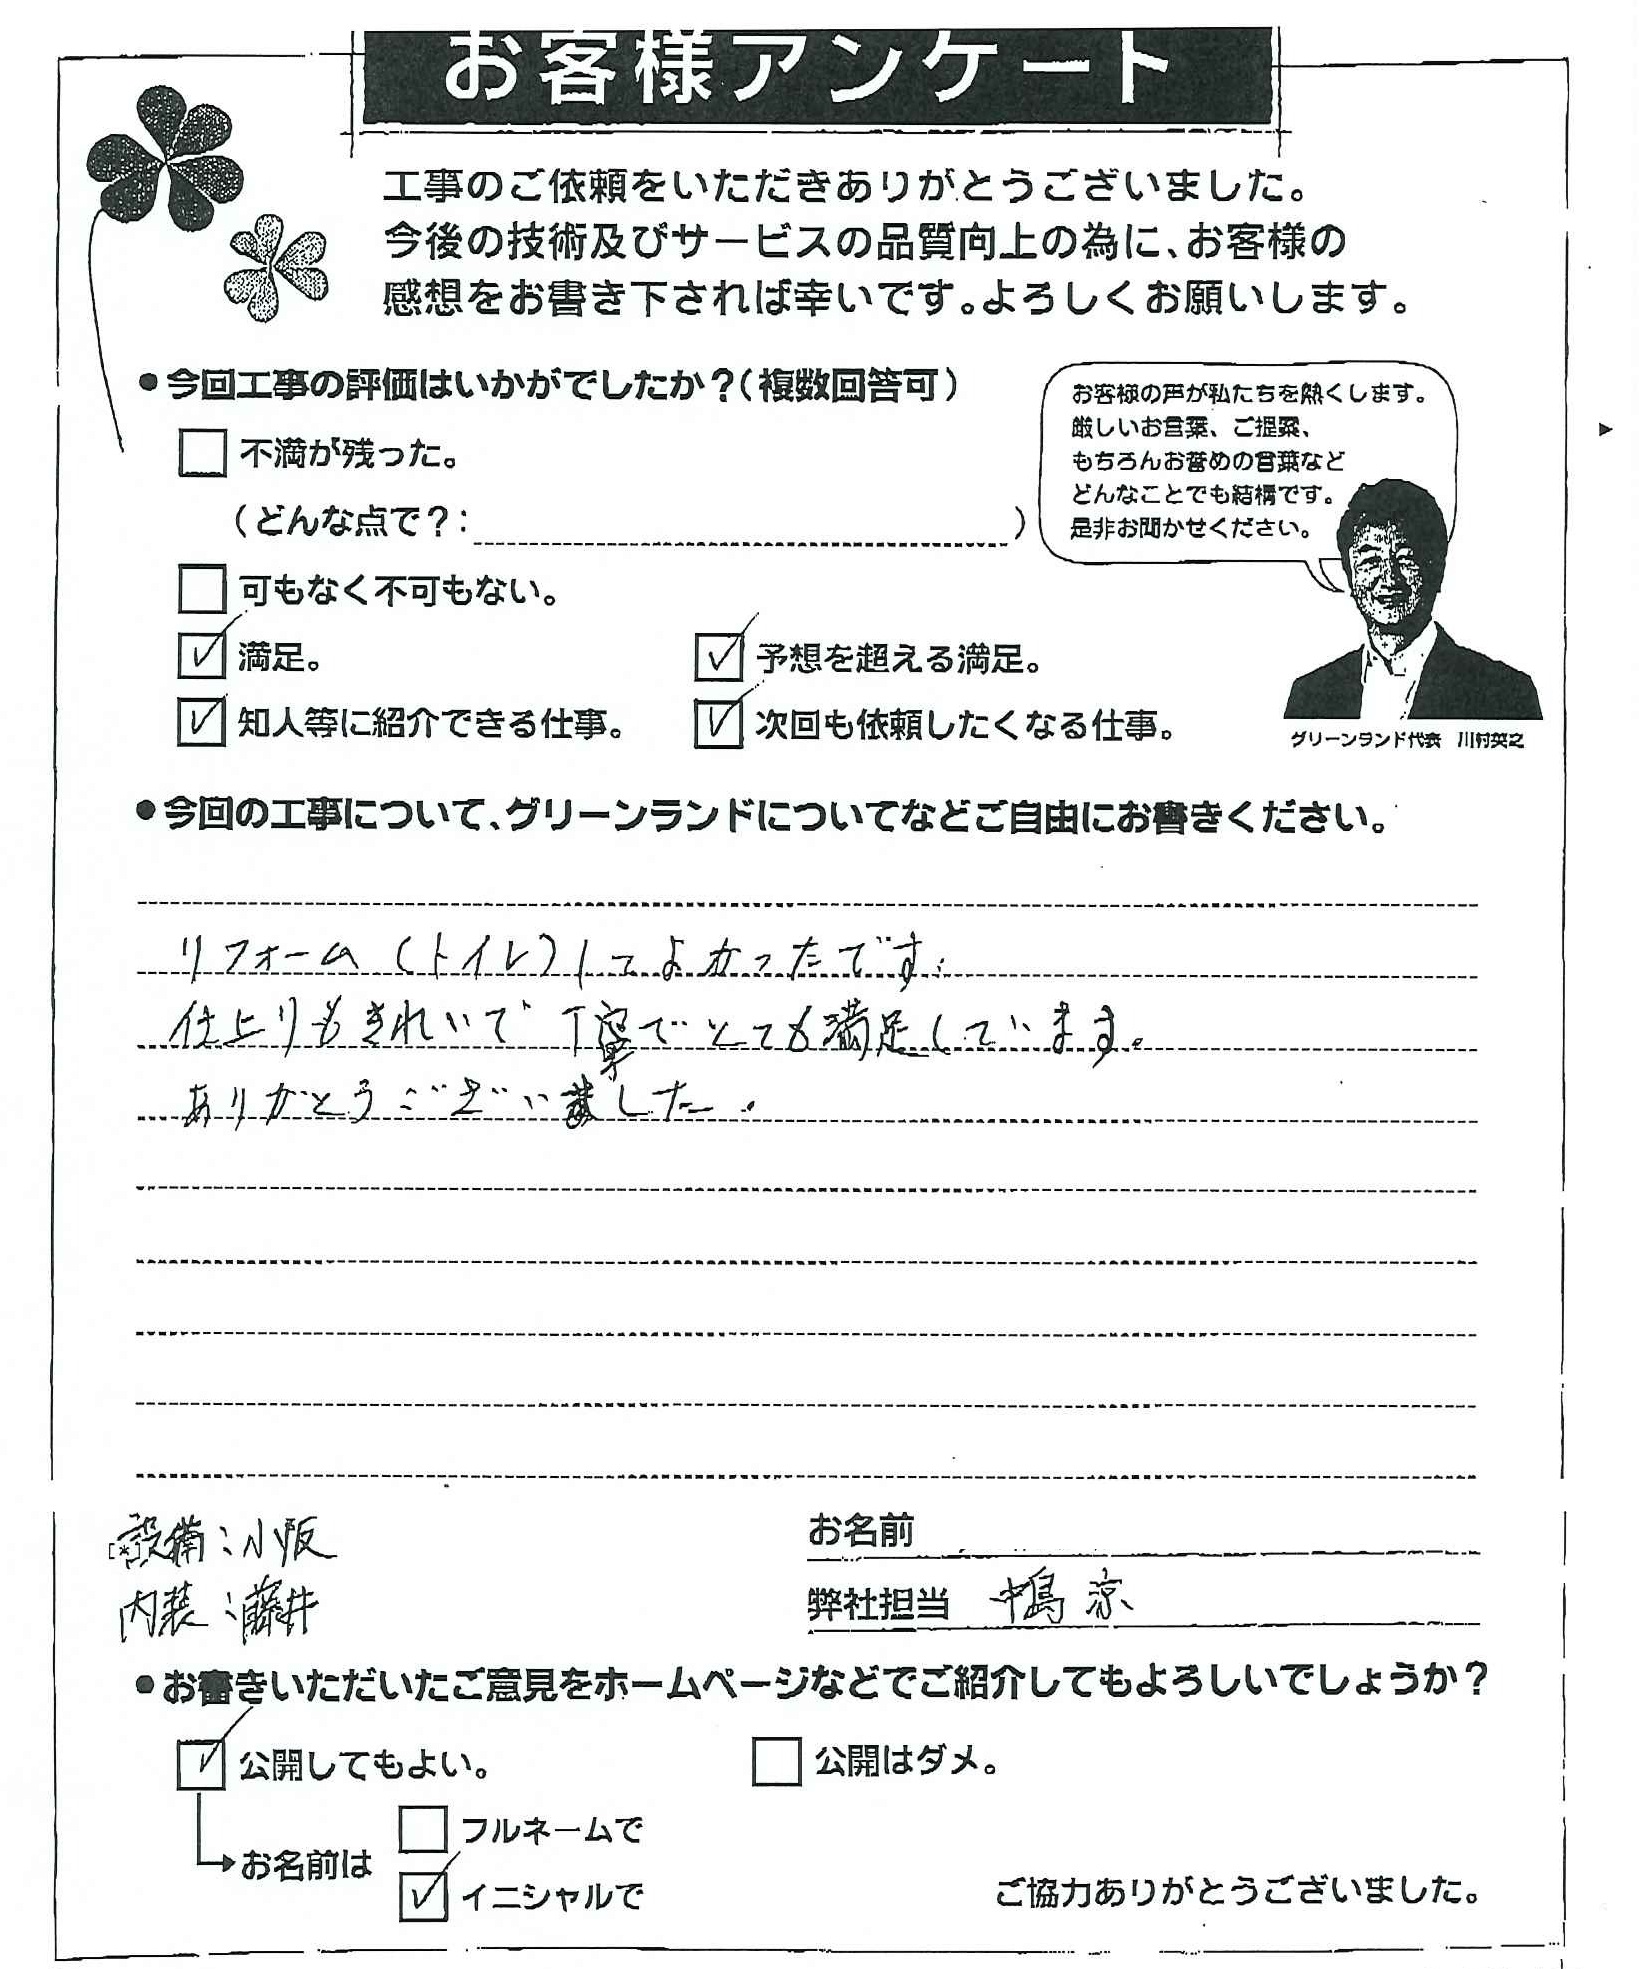 お客様アンケート
工事のご依頼をいただきありがとうございました。
今後の技術及びサービスの品質向上の為に、お客様の
感想をお書き下されば幸いです。よろしくお願いします。
●今回工事の評価はいかがでしたか?(複数回答可)
お客様の声が私たちを熱くします。
厳しいお言葉、ご提案、
もちろんお誉めの言葉など
どんなことでも結構です。
是非お聞かせください。
グリーンランド代表 川村英之
不満が残った。
(どんな点で?: )
可もなく不可もない。
満足。 予想を超える満足。
知人等に紹介できる仕事。 次回も依頼したくなる仕事。
●今回の工事について、グリーンランドについてなどご自由にお書きください。
リフォーム(トイレ)してよかったです。
仕上りもきれいで丁寧でとても満足しています。
ありがとうございました。
設備:小坂
内装:藤井
お名前
弊社担当 中島 涼
●お書きいただいたご意見をホームページなどでご紹介してもよろしいでしょうか?
公開してもよい。 公開はダメ。
お名前は
フルネームで
イニシャルで
ご協力ありがとうございました。